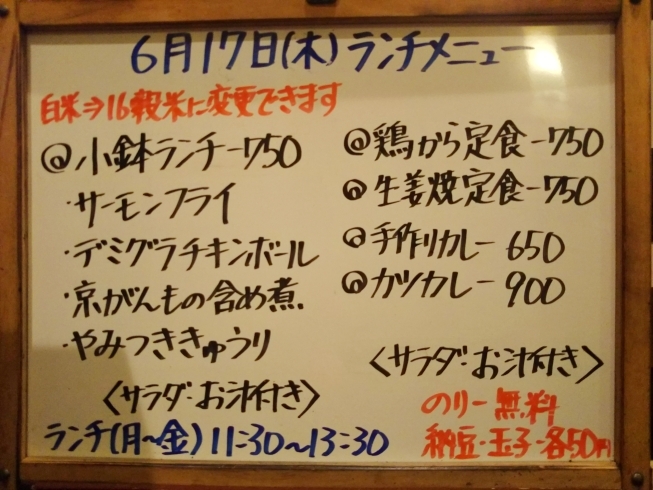 6月17日(木)ランチメニュー
白米⇒16穀米に変更できます
@小鉢ランチー750
・サーモンフライ
・デミグラチキンボール
・京がんもの含め煮
・やみつききゅうり
〈サラダ・お汁付き〉
@鶏から定食ー750
@生姜焼定食ー750
@手作りカレー 650
@カツカレー 900
〈サラダ・お汁付き〉
のりー無料
納豆・玉子・各50円
ランチ(月〜金)11:30〜13:30